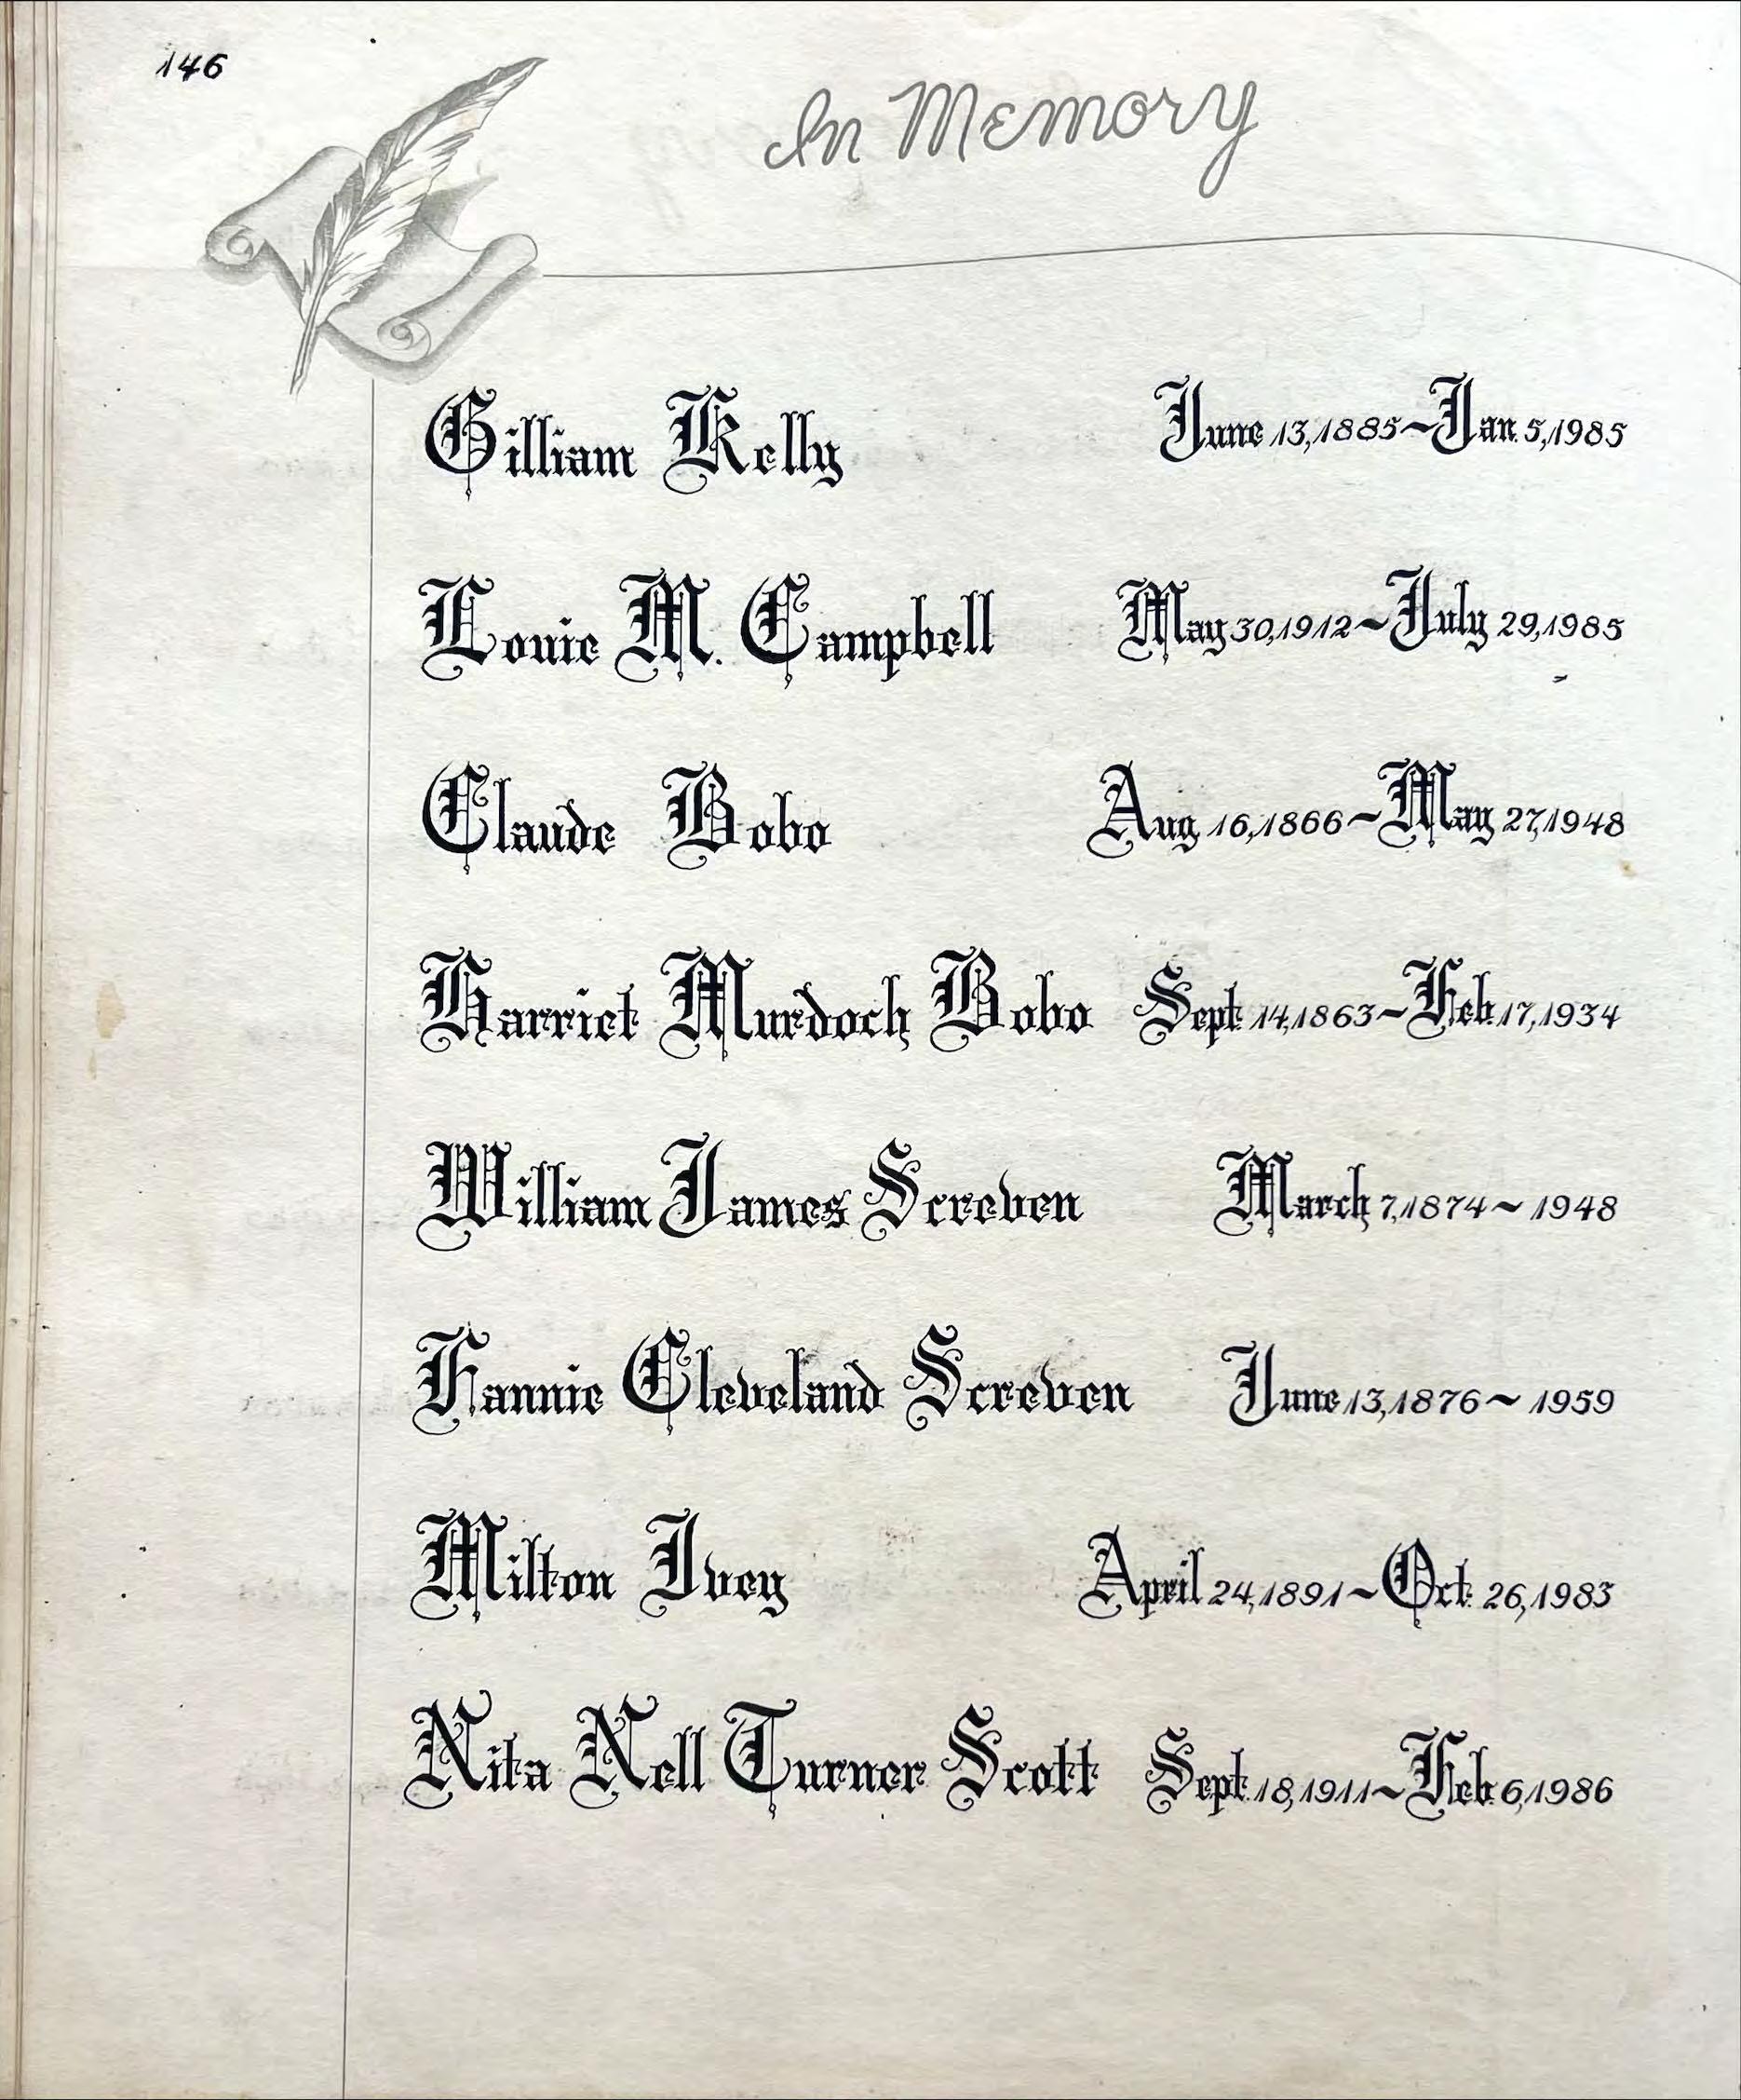 146
In Memory
Gilliam Kelly June 13, 1885~Jan. 5, 1985
Louie M. Campbell May 30, 1912~July 29, 1985
Claude Bobo Aug 16, 1866~May 27, 1948
Harriet Murdoch Bobo Sept. 14, 1863~Feb. 17, 1934
William James Screven March 7, 1874~ 1948
Fannie Cleveland Screven June 13, 1876~ 1959
Milton Ivey April 24, 1891~Oct. 26, 1983
Nita Nell Turner Scott Sept. 18, 1911~Feb. 6, 1986